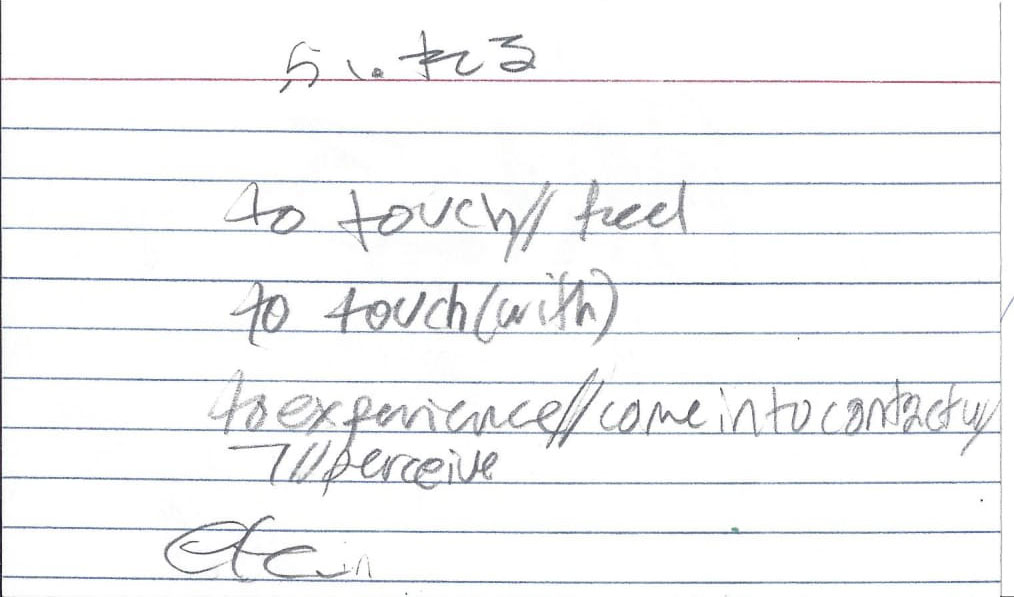 ふ.れる
to touch// feel
to touch(with)
to experience//come into contact w/
//perceive
etc